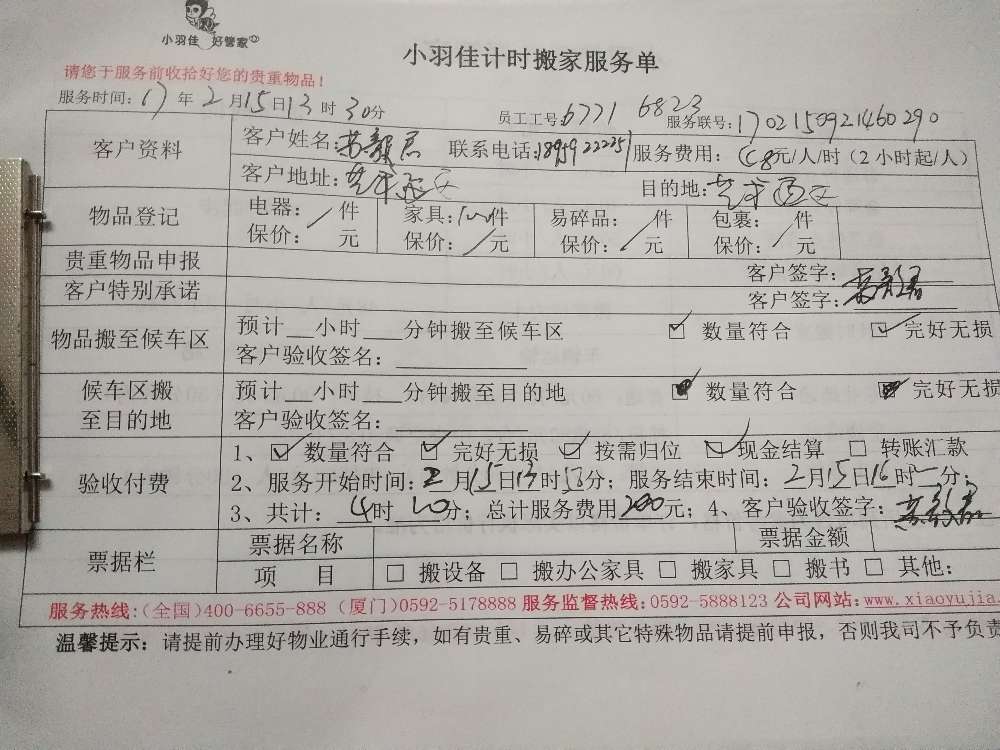 小羽佳 好管家
小羽佳计时搬家服务单
请您于服务前收拾好您的贵重物品！
服务时间：17年2月15日13时30分 员工工号：6771 6823 服务联号：1702150921460290
客户资料 客户姓名： 联系电话：18959222251 服务费用：68元/人/时（2小时起/人）
客户地址： 目的地：
物品登记 电器：/件 家具：件 易碎品：/件 包裹：/件
保价：/元 保价：/元 保价：/元 保价：/元
贵重物品申报 客户签字：
客户特别承诺 客户签字：
物品搬至候车区 预计__小时___分钟搬至候车区 ☑ 数量符合 ☑ 完好无损
客户验收签名：
候车区搬至目的地 预计__小时___分钟搬至目的地 ☑ 数量符合 ☑ 完好无损
客户验收签名：
验收付费 1、☑ 数量符合 ☑ 完好无损 ☑ 按需归位 ☑ 现金结算 □ 转账汇款
2、服务开始时间：2月15日13时分；服务结束时间：2月15日16时分；
3、共计：4时分；总计服务费用200元；4、客户验收签字：
票据栏 票据名称 票据金额
项 目 □ 搬设备 □ 搬办公家具 □ 搬家具 □ 搬书 □ 其他：
服务热线：（全国）400-6655-888（厦门）0592-5178888 服务监督热线：0592-5888123 公司网站：www.xiaoyujia.
温馨提示：请提前办理好物业通行手续，如有贵重、易碎或其它特殊物品请提前申报，否则我司不予负责